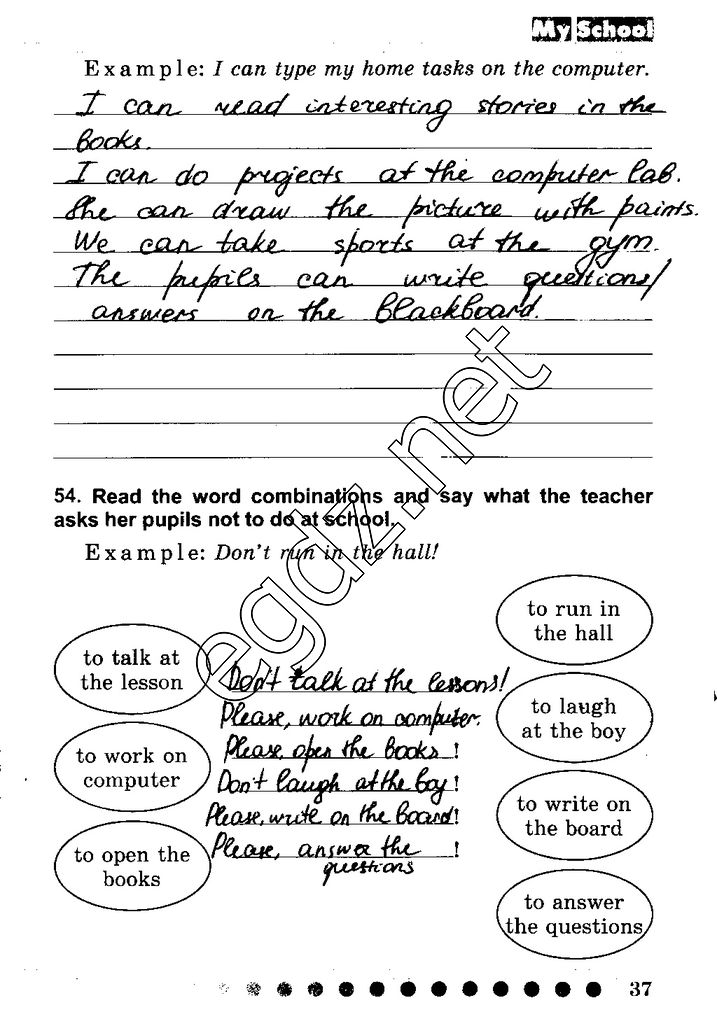 My School
Example: I can type my home tasks on the computer.
I can read interesting stories in the
books.
I can do projects at the computer lab.
She can draw the picture with paints.
We can take sports at the gym.
The pupils can write questions/
answers on the blackboard.
54. Read the word combinations and say what the teacher
asks her pupils not to do at school.
Example: Don't run in the hall!
to run in
the hall
to talk at
the lesson
Don't talk at the lessons!
to laugh
at the boy
Please, work on computer.
to work on
computer
Please, open the books!
Don't laugh at the boy!
to write on
the board
Please, write on the board!
to open the
books
Please, answer the !
questions
to answer
the questions
37
egdz.net